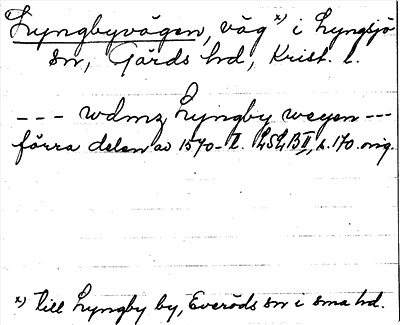 Lyngbyvägen, väg x) i Lyngsjö
sn, Gärds hd, Krist. l.
--- wdmz Lyngby wegen ---
förra delen av 1570-t. LSLB II, s. 170. orig.
x) till Lyngby by, Everöds sn i sma hd.